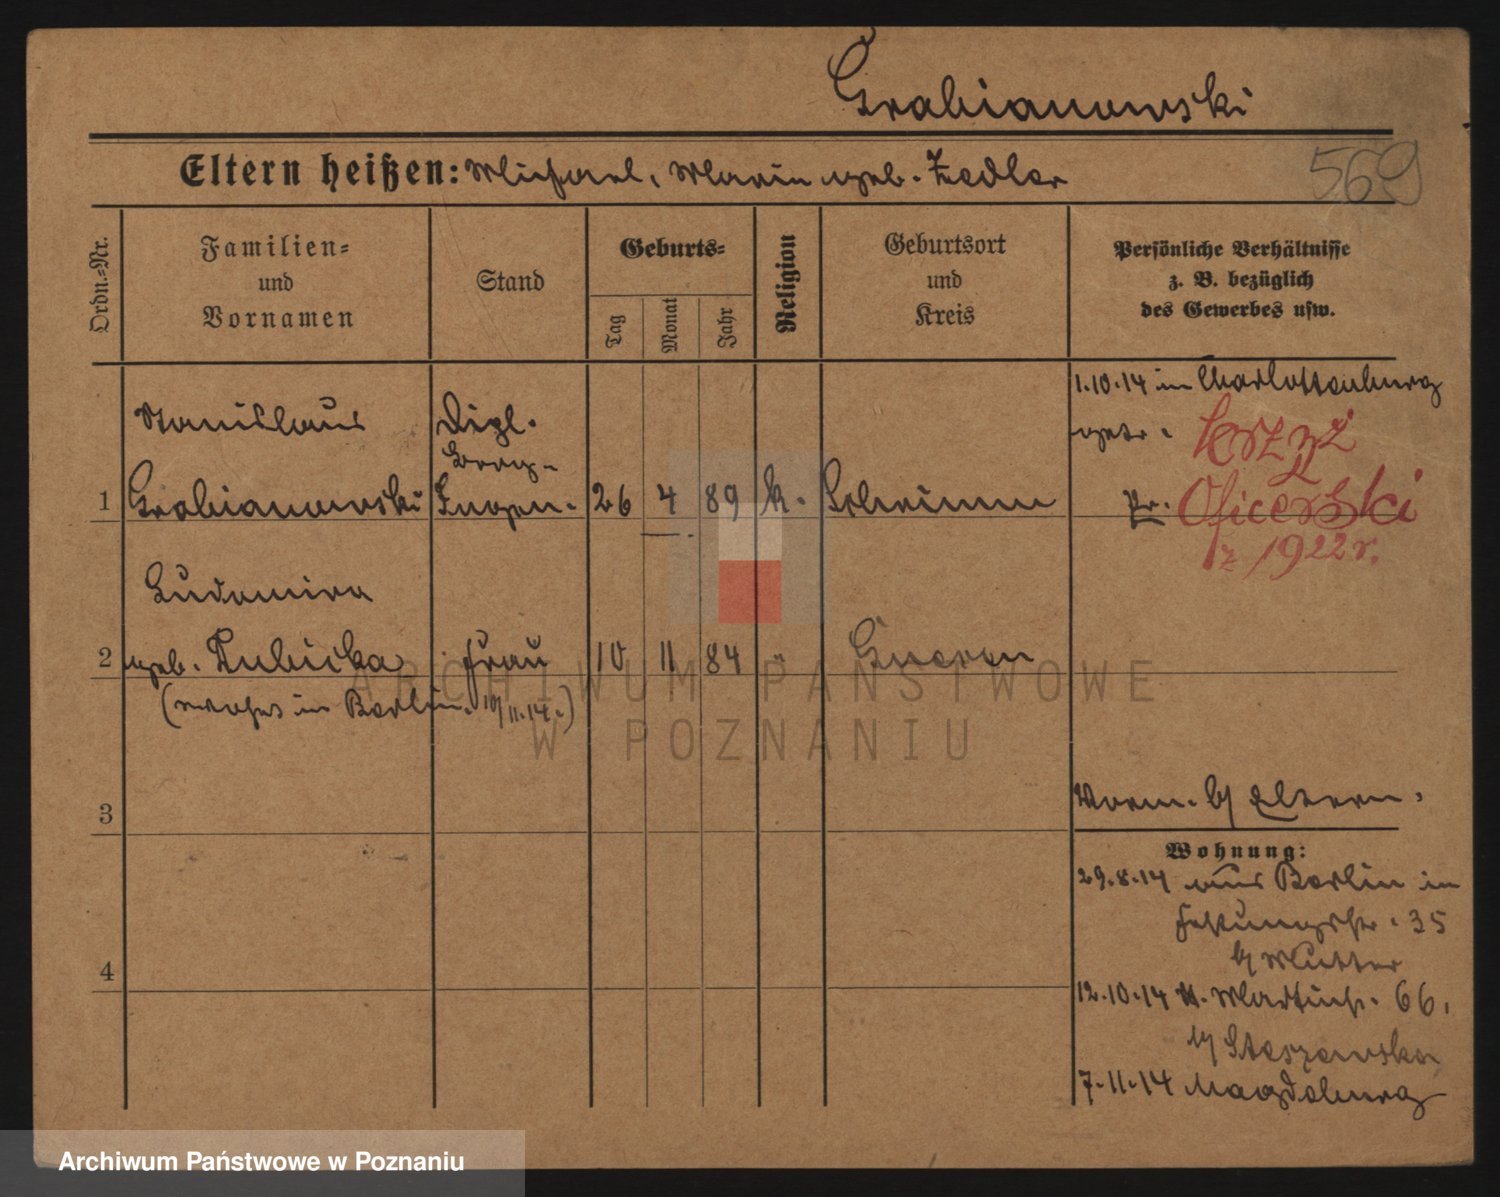 Grabianowski
Eltern heißen: Michael, Marie geb. Zedler
569
Ordn.-Nr.
Familien-
und
Vornamen
Stand
Geburts-
Tag
Monat
Jahr
Religion
Geburtsort
und
Kreis
Persönliche Verhältnisse
z. B. bezüglich
des Gewerbes usw.
1.10.14 in Charlottenburg
getr.
Krzyż
Pr. Oficerski
z 1922 r.
Stanislaus
Dipl.
Berg-
1 Grabianowski Ingen. 26 4 89 k. Schrimm
Ludomira
2 geb. Frau 10 11 84 " Gnesen
( in Berlin. 10/11.14.)
3
Vorm. b/ Eltern.
Wohnung:
29.8.14 aus Berlin in
Festungstr. 35
b/ Mutter
4
12.10.14 N. Martinstr. 66.
b/ Staszewska
7.11.14 Magdeburg
ARCHIWUM PAŃSTWOWE
W POZNANIU
Archiwum Państwowe w Poznaniu